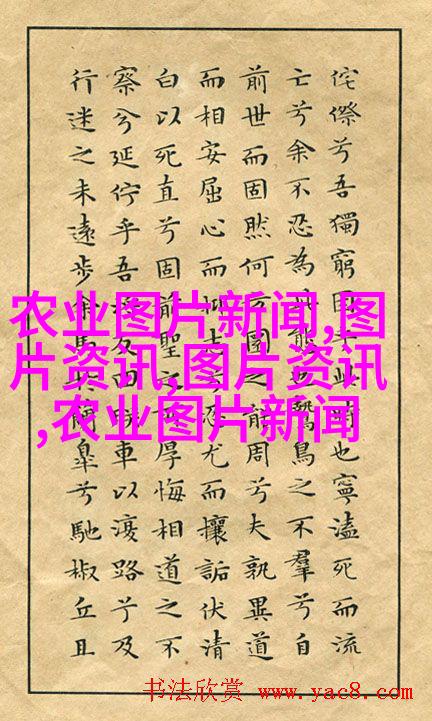 侘傺兮吾獨窮困乎此時也寧溘死而流
亡兮余不忍為此態也鷙鳥之不羣兮自
前世而固然何方圜之能周兮夫孰異道
而相安屈心而抑志兮忍尤而攘詬伏清
白以死直兮固前聖之所厚悔相道之不
察兮延佇乎吾反回朕車以復路兮及
行迷之未遠步余馬於蘭皋兮馳椒丘且
农业图片新闻,图
片资讯,图片资讯
,农业图片新闻
书法欣赏 www.yac8.com